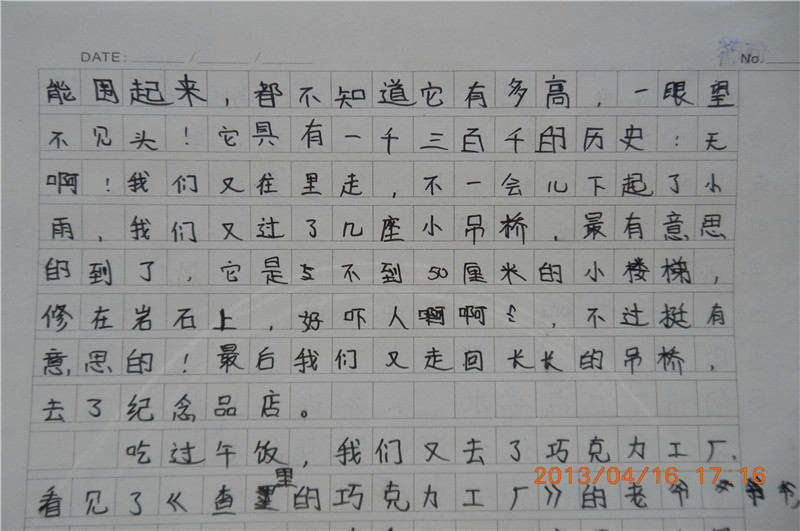 DATE: / /
No.
能围起来，都不知道它有多高，一眼望
不见头！它具有一千三百千的历史：天
啊！我们又往里走，不一会儿下起了小
雨，我们又过了几座小吊桥，最有意思
的到了，它是 不到50厘米的小楼梯，
修在岩石上，好吓人啊啊 ，不过挺有
意思的！最后我们又走回长长的吊桥，
去了纪念品店。
吃过午饭，我们又去了巧克力工厂.
看见了《查里的巧克力工厂》的老爷爷爷
2013/04/16 17:16